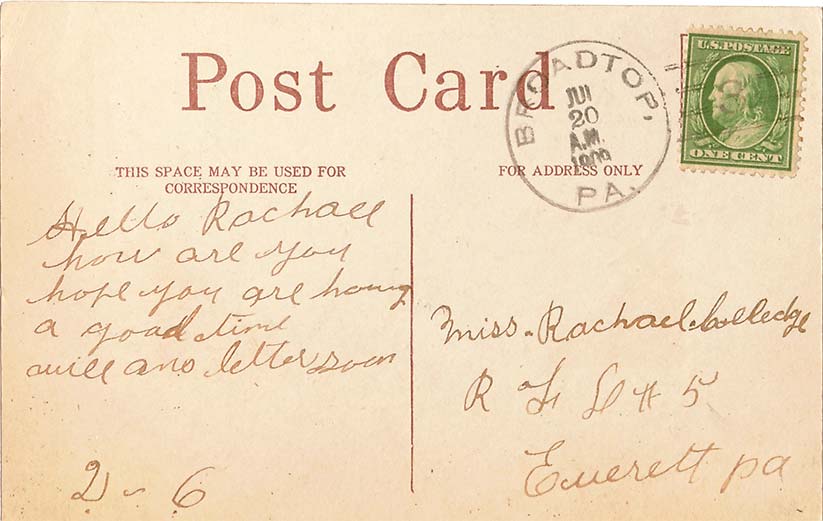 Post Card
BROADTOP,
JUL
20
A.M.
1909
PA.
U.S. POSTAGE
ONE CENT
THIS SPACE MAY BE USED FOR
CORRESPONDENCE
FOR ADDRESS ONLY
Hello Rachael
how are you
hope you are having
a good time
will ans letter soon
Miss. Rachael. Colledge
R F D # 5
Everett pa